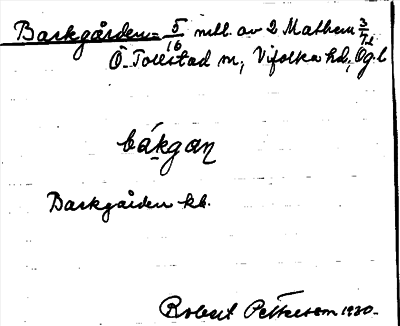 Barkgården = 5/16 mtl. av 2 Mathem 3/72
Ö. Tollstad sn, Vifolka hd, Ög. l
bákgaɳ
Barkgården kb.
Robert Pettersson 1930.